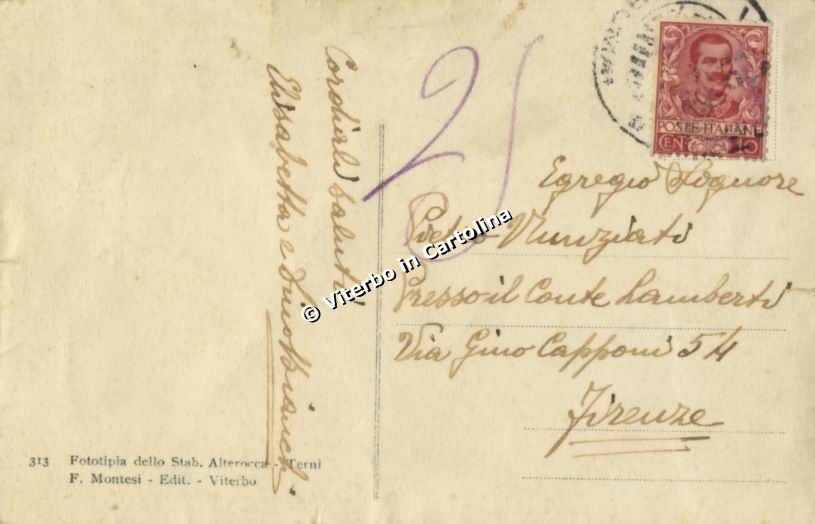 Cordiali saluti
Elisabetta e Bianchi
25
POSTE ITALIANE
CEN 10
Egregio Signore
Pietro Nunziati
Presso il Conte Lamberti
Via Gino Capponi 54
Firenze
© Viterbo in Cartolina
313 Fototipia dello Stab. Alterocca - Terni
F. Montesi - Edit. - Viterbo